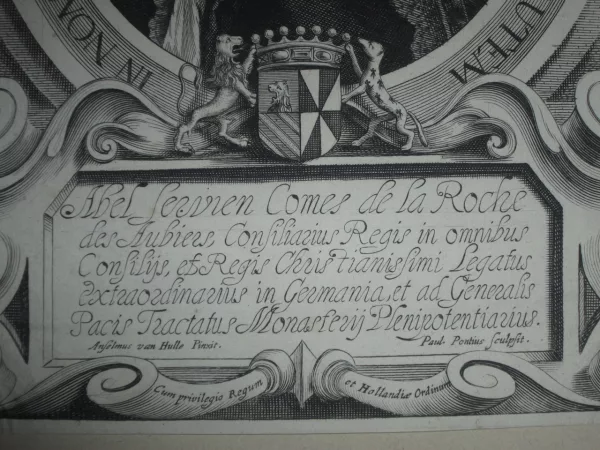 IN NOM
UTEM
Abel Servien Comes de la Roche
des Aubiers, Consiliarius Regis in omnibus
Consilijs, et Regis Christianissimi Legatus
extraordinarius in Germania, et ad Generalis
Pacis Tractatus Monasterij Plenipotentiarius.
Anselmus van Hulle Pinxit.
Paul. Pontius sculpsit.
Cum privilegio Regum
et Hollandiæ Ordinum